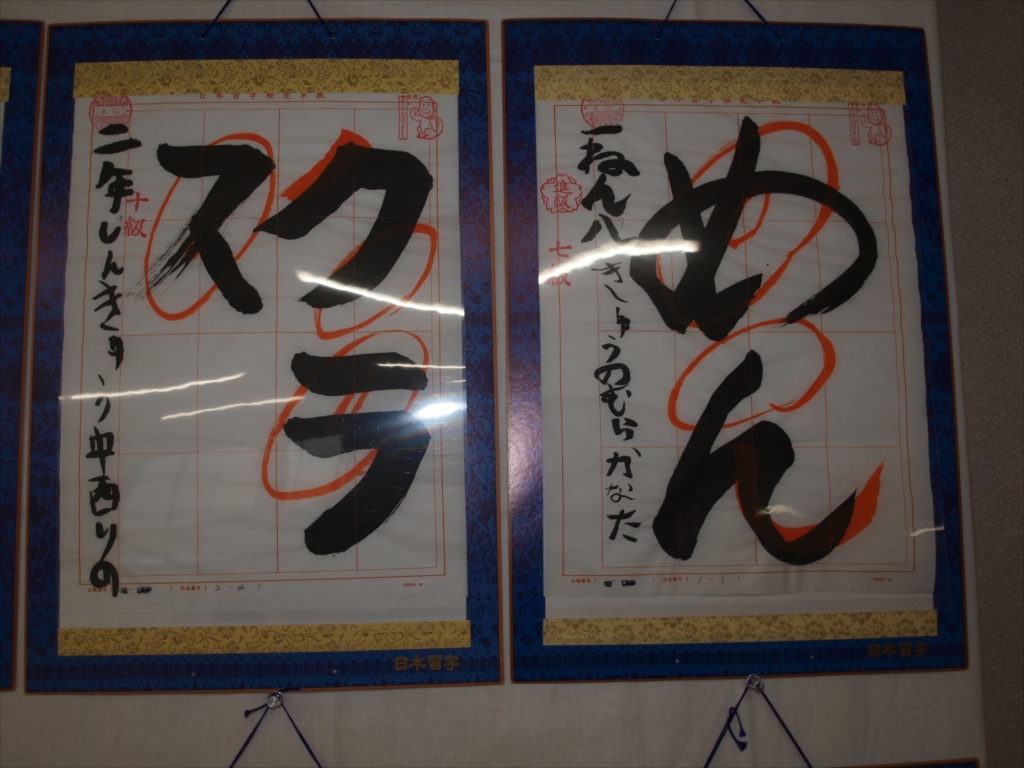 めん
一ねん八きゅうのむらかなた
進級
七級
1-1
日本習字
クラ
ス
二年しんきゅう中西りの
十級
2-4
日本習字